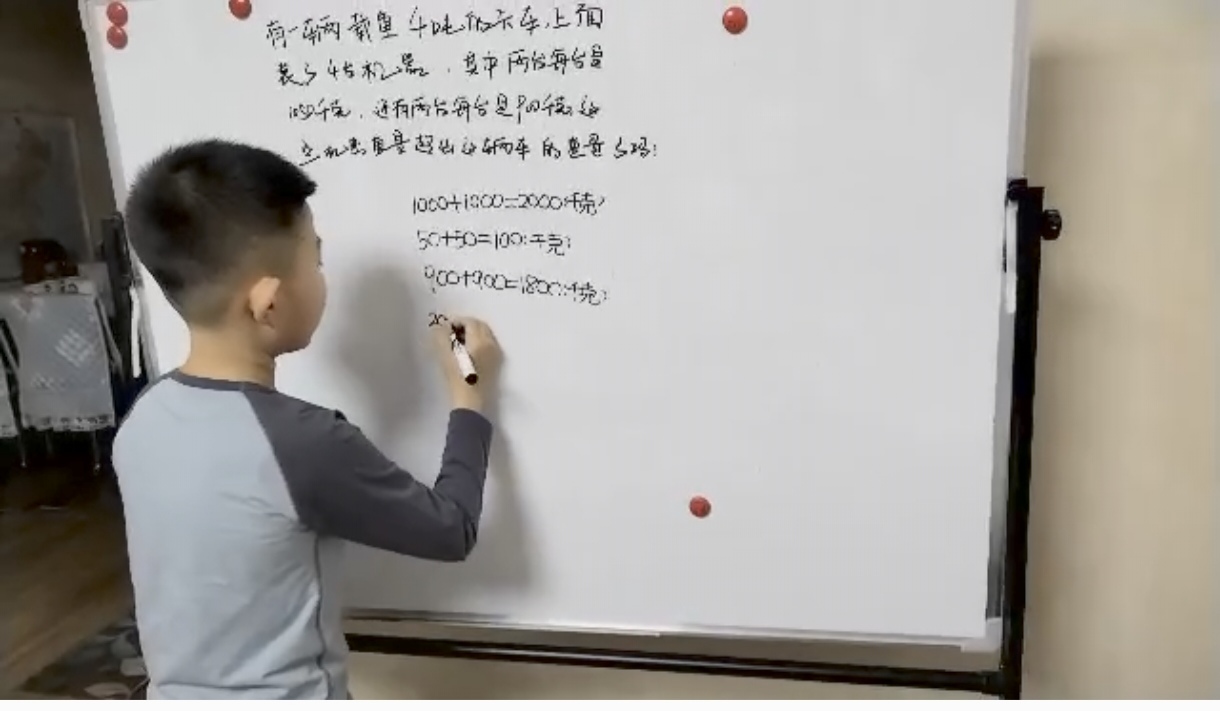 有一辆载重4吨的卡车,上面
装了4台机器,其中两台每台重
1050千克,还有两台每台是900千克,这
些机器重量超出这辆车的重量了吗?
1000+1000=2000(千克)
50+50=100(千克)
900+900=1800(千克)
20